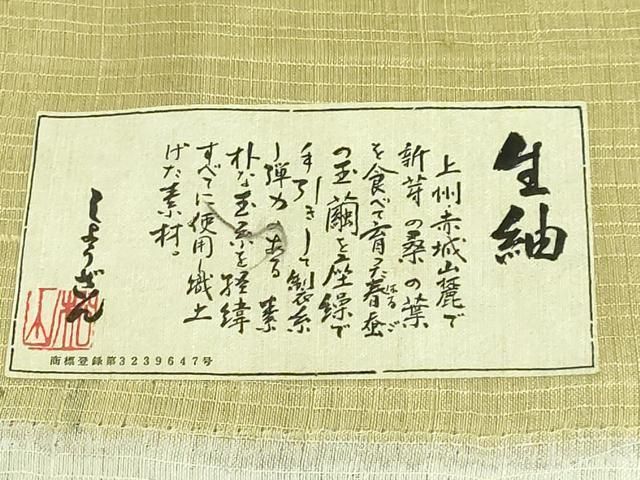 生紬
上州赤城山麓で
新芽の桑の葉
を食べて育った春蚕
はるご
の玉繭を座繰で
手引きして製糸
し弾力ある素
朴な玉糸を経緯
すべてに使用し織上
げた素材。
しょうざん
商標登録第3239647号